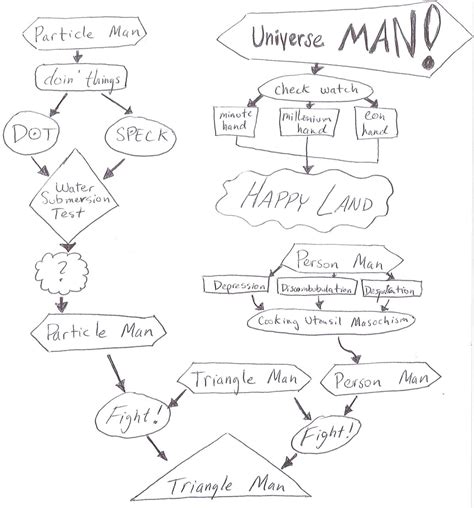 Particle Man
doin' things
DOT
SPECK
Water
Submersion
Test
?
Particle Man
Fight!
Universe MAN!
check watch
minute
hand
millenium
hand
eon
hand
HAPPY LAND
Person Man
Depression
Discombubulation
Cooking Utensil Masochism
Triangle Man
Person Man
Fight!
Triangle Man